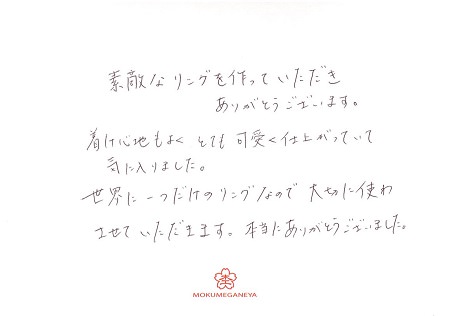 素敵なリングを作っていただき
ありがとうございます。
着け心地もよく とても可愛く仕上がっていて
気に入りました。
世界に一つだけのリングなので 大切に使わ
させていただきます。本当にありがとうございました。
MOKUMEGANEYA